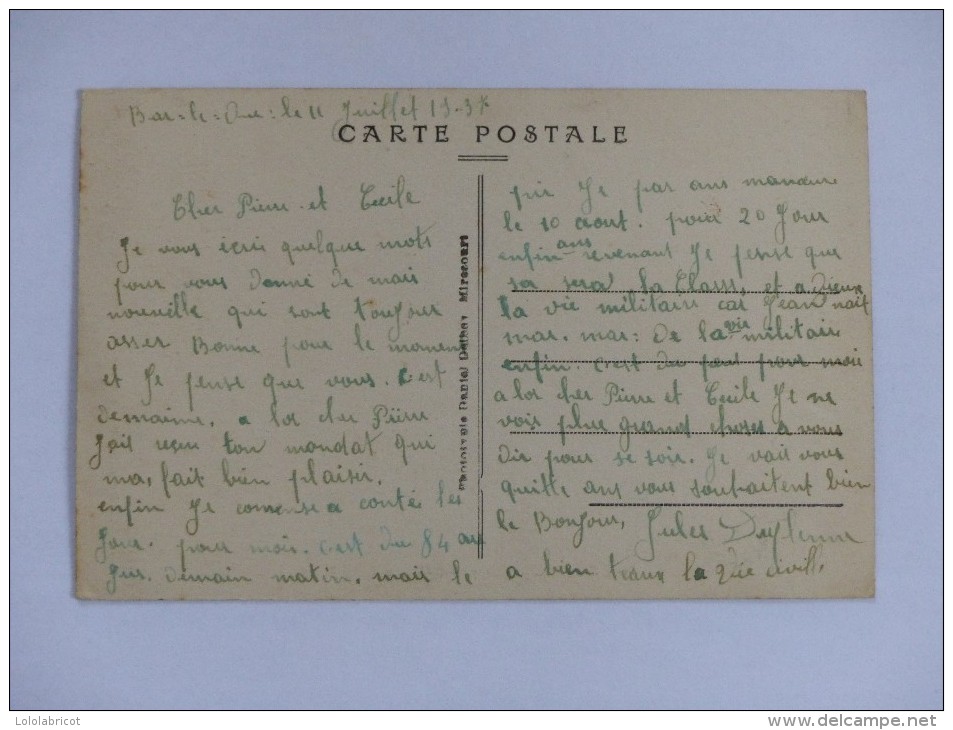 Bar-le-Duc le 11 Juillet 193
CARTE POSTALE
Cher Pierre et Cecile
Je vous écri quelque mots
pour vous donné de mais
nouvelle qui sont toujour
asser Bonne pour le moment
et Je pense que vous. c'est
demaime, a lor cher Pierre
Jait reçu ton mandat qui
ma, fait bien plaisir,
enfin Je comense a conté les
Jour. pour moi. c'est du 84 au
Jus. demain matin, mais le
Daniel Delboy Mirecourt
pir Je par ans maneuvre
le 10 aout. pour 20 Jour
enfin ans revenant Je pense que
sa sera la Classs, et a Dieux
la vie militair car Jean nait
mar. mar: de la vie militair
enfin c'est du peut pour moi
a lor cher Pierre et Cecile Je ne
voir plue grand choses a vous
dir pour se soir. Je vait vous
quitte ans vous souhaitent bien
le Bonjour, Jules
a bien teaux la Vie civill,
Lololabricot
www.delcampe.net